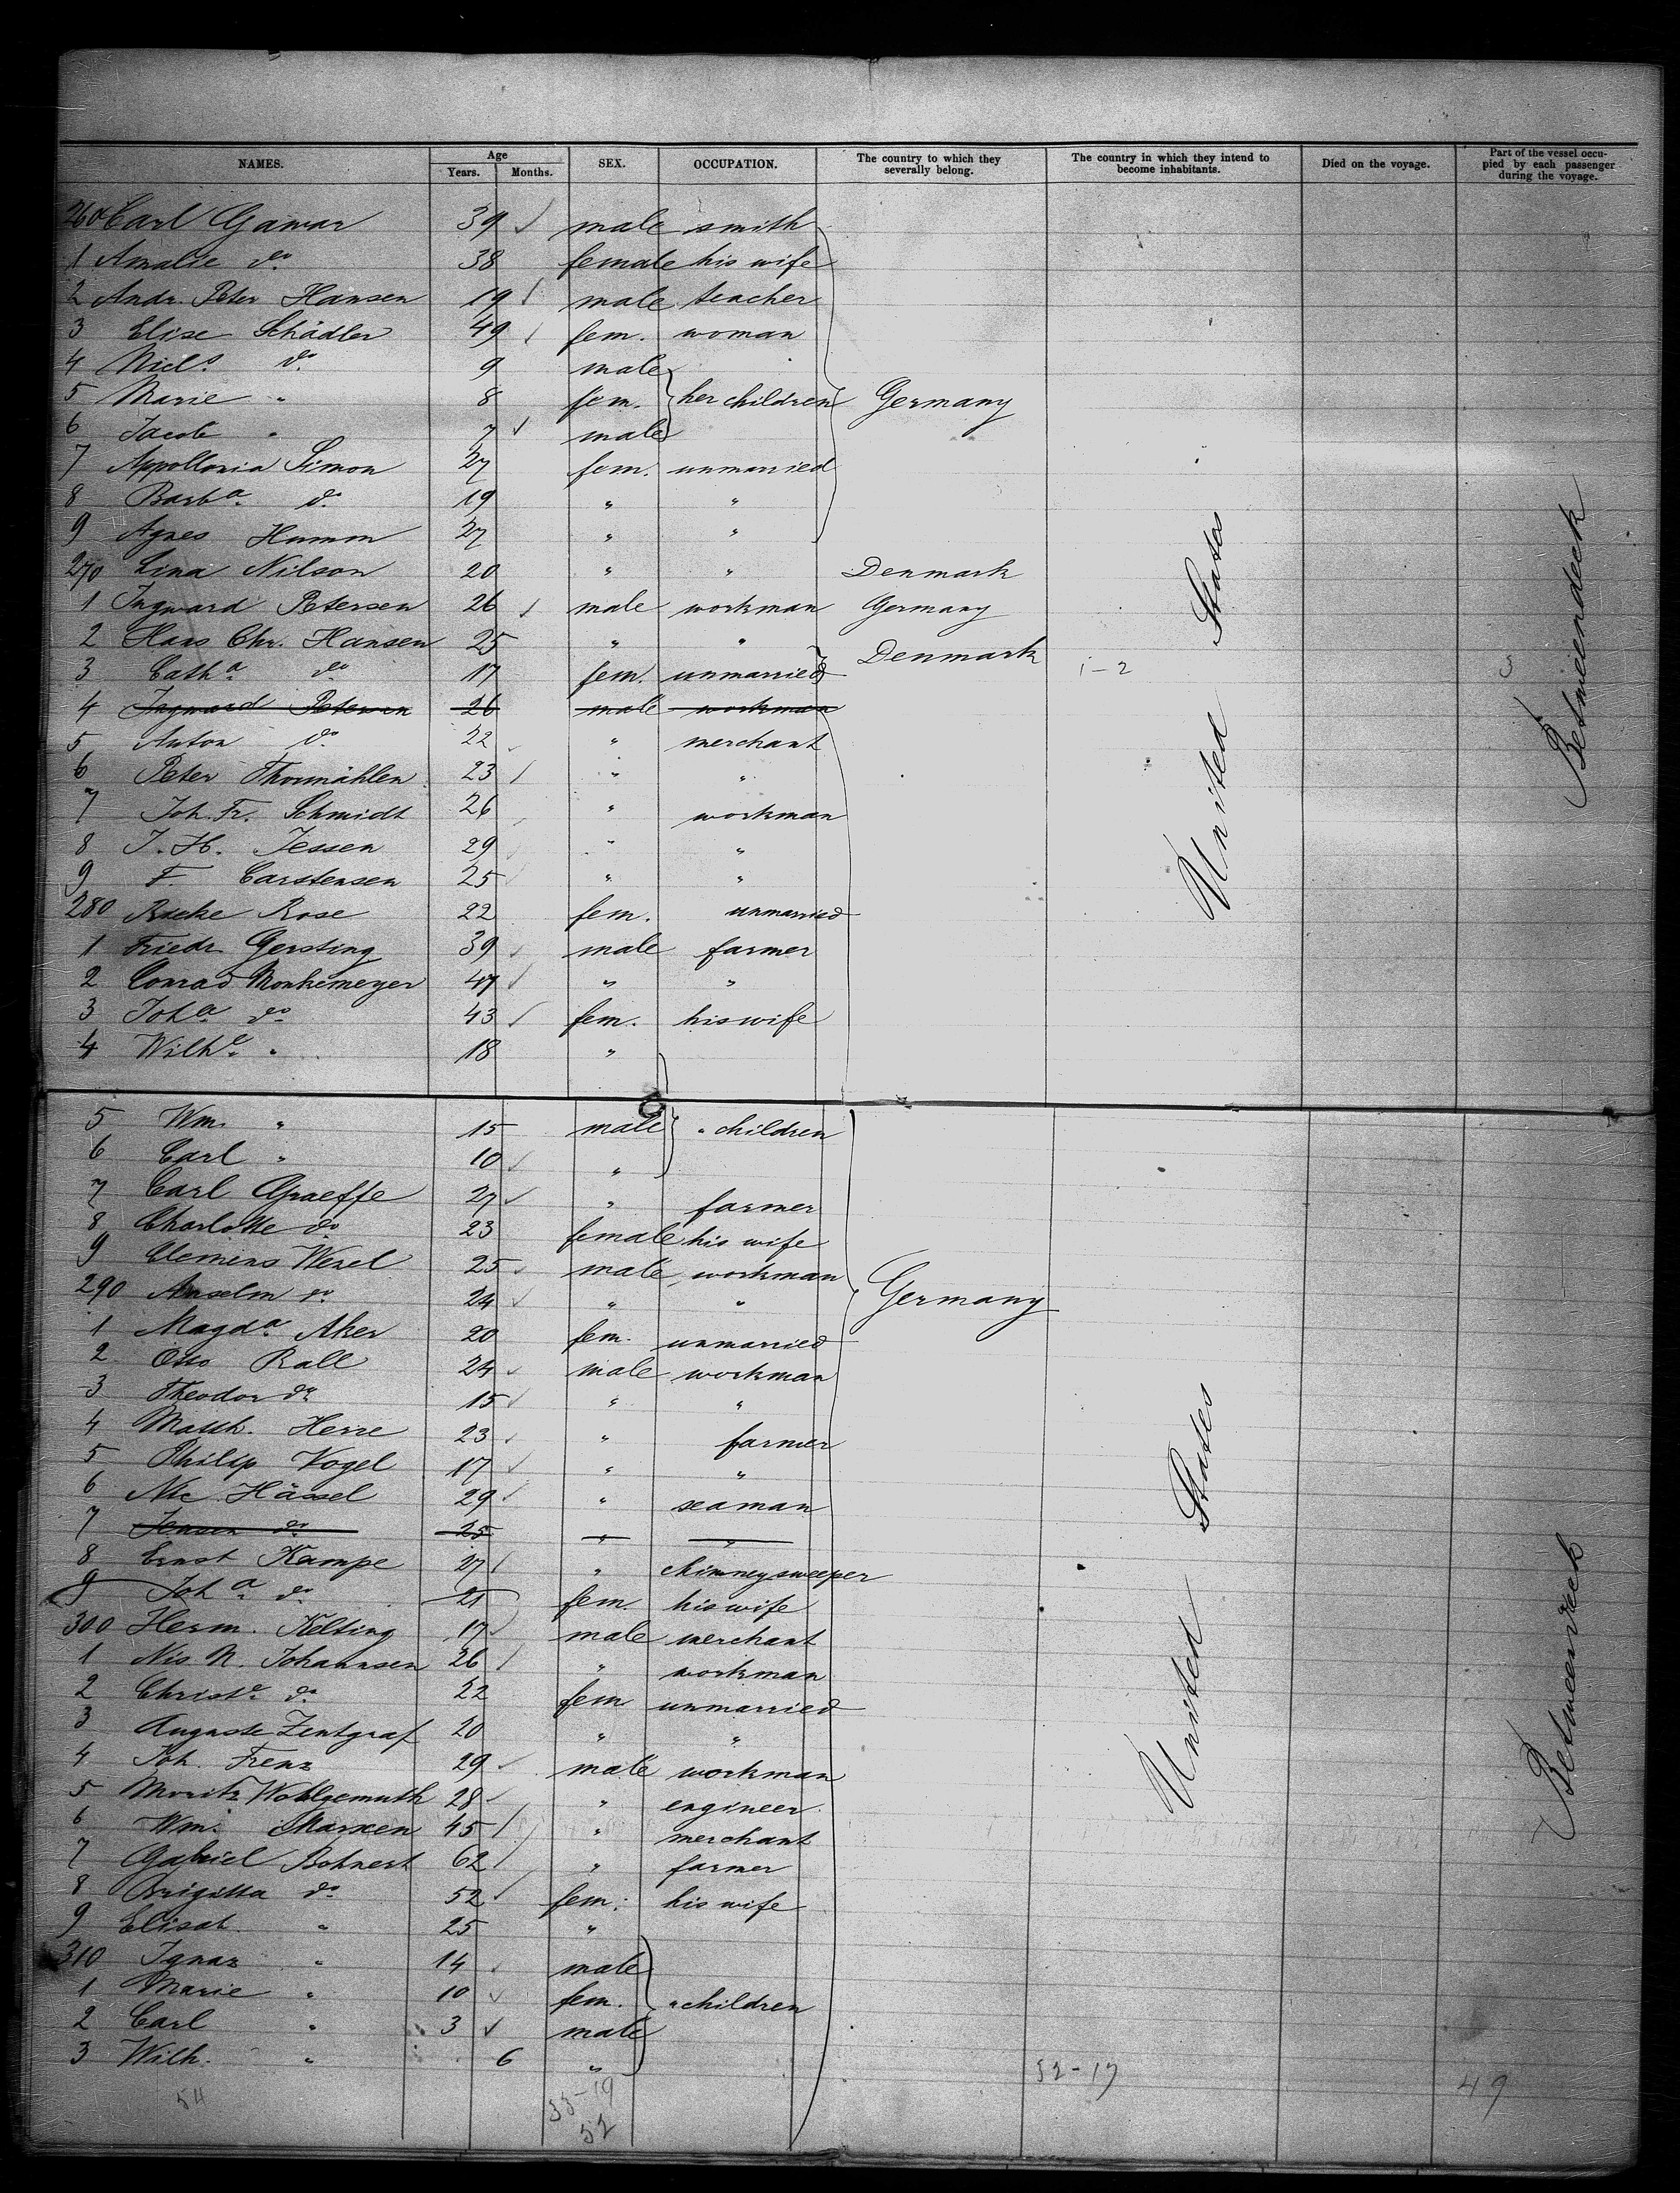 NAMES. Age Years. Months. SEX. OCCUPATION. The country to which they severally belong. The country in which they intend to become inhabitants. Died on the voyage. Part of the vessel occupied by each passenger during the voyage.
260 Carl Gawar 39 male smith
1 Amalie do 38 female his wife
2 Andr. Peter Hansen 19 male teacher
3 Elise Schädler 49 fem. woman
4 Niels do 9 male
5 Marie " 8 fem. her children Germany
6 Jacob " 7 male
7 Appollonia Simon 27 fem. unmarried
8 Barba. do 19 " "
9 Agnes Humm 27 " "
270 Lina Nilson 20 " " Denmark
1 Ingward Petersen 26 male workman Germany
2 Hans Chr. Hansen 25 " "
3 Catha. do 17 fem. unmarried Denmark 1-2 3
4 Ingward Petersen 26 male workman
5 Anton do 22 " merchant
6 Peter Thormählen 23 " "
7 Joh. Fr. Schmidt 26 " workman
8 J. H. Jessen 29 " "
9 F. Carstensen 25 " "
280 Rieke Rose 22 fem. unmarried
1 Friedr Gersting 39 male farmer
2 Conrad Monkemeyer 47 " "
3 Joha. do 43 fem. his wife
4 Wilhe. " 18 "
United States
Betweendeck
5 Wm. " 15 male " children
6 Carl " 10 "
7 Carl Graeffe 27 " farmer
8 Charlotte do 23 female his wife
9 Clemens Wesel 25 male workman
290 Anselm do 24 " " Germany
1 Magda. Aker 20 fem. unmarried
2 Otto Rall 24 male workman
3 Theodor do 15 " "
4 Matth. Herre 23 " farmer
5 Philip Vogel 17 " "
6 Nic. Hässel 29 " seaman
7 Jensen do 25 " "
8 Ernst Kampe 27 " chimneysweeper
9 Joha. do 21 fem. his wife
300 Herm. Kelting 17 male merchant
1 Nis N. Johannsen 26 " workman
2 Christe. do 22 fem unmarried
3 Auguste Zentgraf 20 " "
4 Joh. Frenz 29 male workman
5 Moritz Wohlgemuth 28 " engineer
6 Wm. Marxen 45 " merchant
7 Gabriel Bohnert 62 " farmer
8 Brigitta do 52 fem. his wife
9 Elisab. " 25 "
310 Ignaz " 14 male
1 Marie " 10 fem. " children
2 Carl " 3 male
3 Wilh. " 6 "
United States
Betweendeck
54 33-19 52-17 49
52